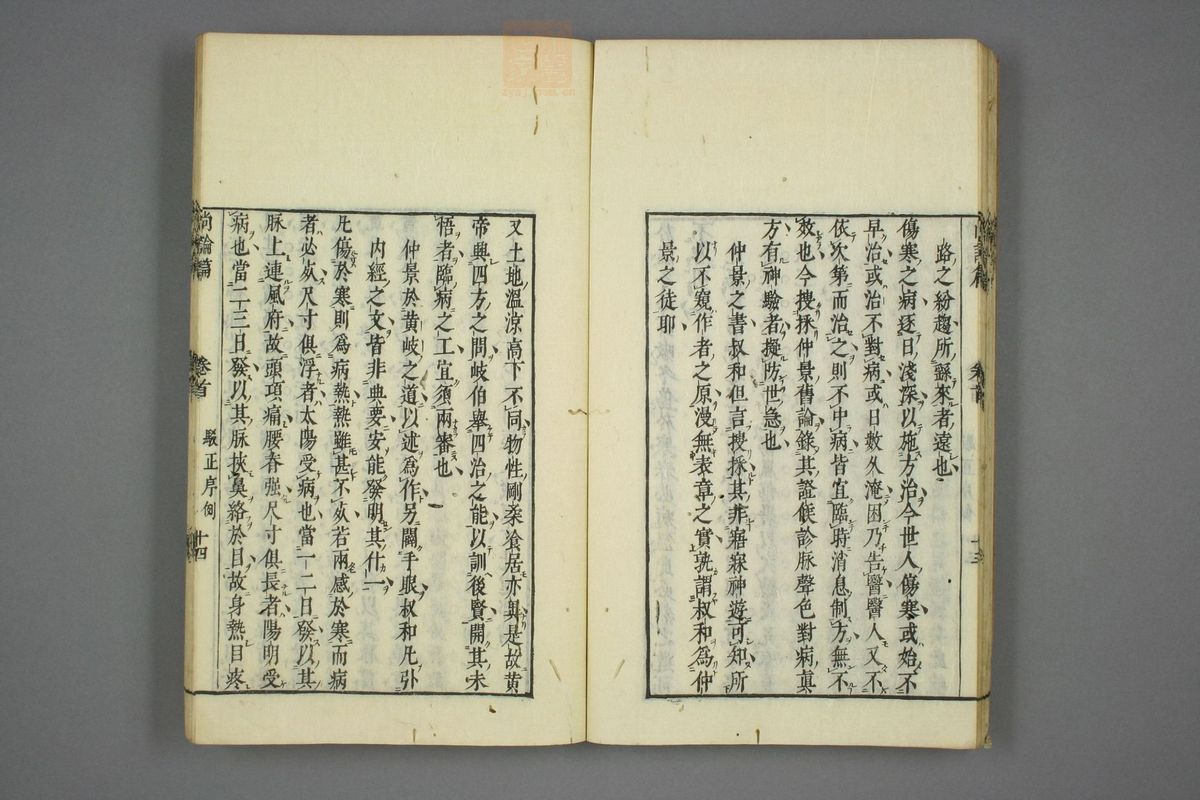 路之紛趨所繇來者遠也
傷寒之病逐日淺深以施方治今世人傷寒或始不
早治或治不對病或日數久淹困乃告醫醫人又不
依次第而治之則不中病皆宜臨時消息制方無不
效也今搜採仲景舊論錄其證候診脉聲色對病眞
方有神驗者擬防世急也
仲景之書叔和但言搜採其非寤寐神遊可知所
以不窺作者之原漫無表章之實孰謂叔和爲仲
景之徒耶
又土地溫凉高下不同物性剛柔飡居亦異是故黃
帝興四方之問岐伯舉四治之能以訓後賢開其未
悟者臨病之工宜須兩審也
仲景於黃岐之道以述爲作另闢手眼叔和凡引
內經之文皆非典要安能發明其什一
凡傷於寒則爲病熱熱雖甚不死若兩感於寒而病
者必死尺寸俱浮者太陽受病也當一二日發以其
脉上連風府故頭項痛腰脊强尺寸俱長者陽明受
病也當二三日發以其脉挾鼻絡於目故身熱目疼
尚論篇 卷首 駁正序例 十四